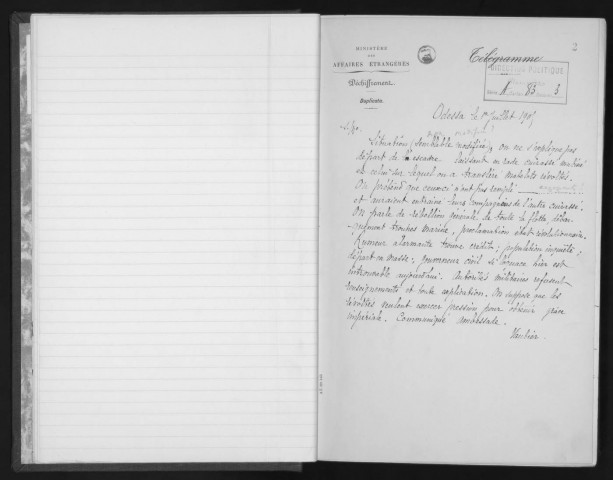 2
MINISTÈRE
DES
AFFAIRES ÉTRANGÈRES
Déchiffrement.
Duplicata.
Télégramme
DIRECTION POLITIQUE
83 3
Odessa le 1er Juillet 1905
Situation on ne s'explique pas
départ de l'escadre laissant en rade cuirassé mutiné
et celui sur lequel on a transféré matelots révoltés.
On prétend que ceux-ci n'ont pas rempli
et auraient entraîné leurs compagnons de l'autre cuirassé.
On parle de rébellion générale de toute la flotte
troupes marine, proclamation état révolutionnaire.
Rumeur alarmante trouve crédit; population inquiète;
départ en masse; gouverneur civil si bien est
introuvable aujourd'hui. Autorités militaires refusent
renseignements et toute explication. On suppose que les
révoltés veulent exercer pression pour obtenir grâce
impériale. Communiqué ambassade.